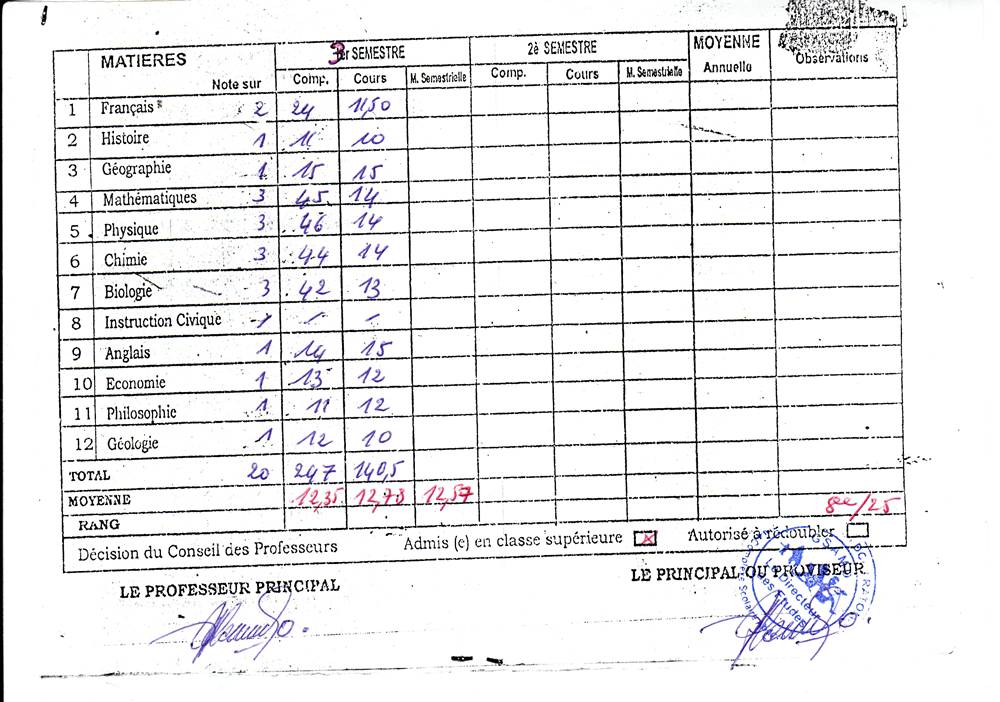 MATIERES Note sur 3er SEMESTRE 2è SEMESTRE MOYENNE Annuelle Observations
Comp. Cours M. Semestrielle Comp. Cours M. Semestrielle
1 Français 2 24 11,50
2 Histoire 1 11 10
3 Géographie 1 15 15
4 Mathématiques 3 45 14
5 Physique 3 46 14
6 Chimie 3 44 14
7 Biologie 3 42 13
8 Instruction Civique - - -
9 Anglais 1 14 15
10 Economie 1 13 12
11 Philosophie 1 11 12
12 Géologie 1 12 10
TOTAL 20 247 140,5
MOYENNE 12,35 12,73 12,57
RANG 8e/25
Décision du Conseil des Professeurs Admis (e) en classe supérieure x Autorisé à redoubler
LE PROFESSEUR PRINCIPAL LE PRINCIPAL OU PROVISEUR
Directeur
des Etudes